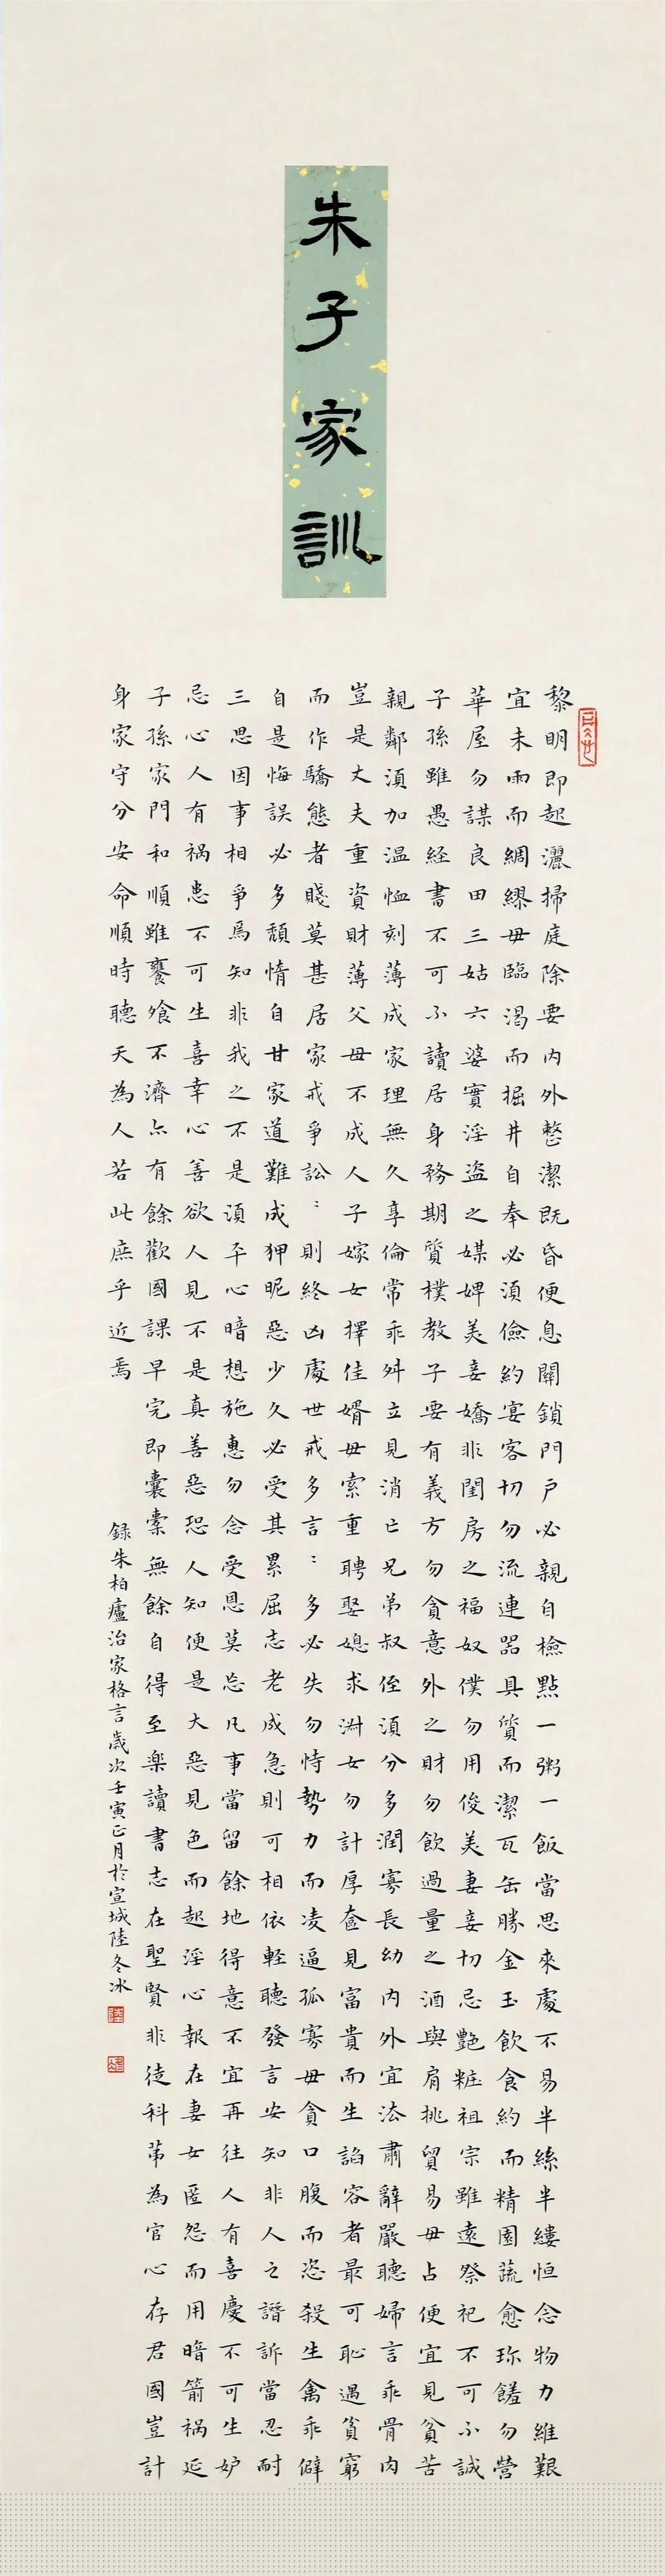 朱子家訓
黎明即起灑掃庭除要內外整潔既昏便息關鎖門戶必親自檢點一粥一飯當思來處不易半絲半縷恒念物力維艱
宜未雨而綢繆毋臨渴而掘井自奉必須儉約宴客切勿流連器具質而潔瓦缶勝金玉飲食約而精園蔬愈珎饈勿營
華屋勿謀良田三姑六婆實淫盜之媒婢美妾嬌非閨房之福奴僕勿用俊美妻妾切忌艷粧祖宗雖遠祭祀不可不誠
子孫雖愚經書不可不讀居身務期質樸教子要有義方勿貪意外之財勿飲過量之酒與肩挑貿易毋占便宜見貧苦
親鄰須加温恤刻薄成家理無久享倫常乖舛立見消亡兄弟叔侄須分多潤寡長幼內外宜法肅辭嚴聽婦言乖骨肉
豈是丈夫重資財薄父母不成人子嫁女擇佳婿毋索重聘娶媳求淑女勿計厚奩見富貴而生諂容者最可恥遇貧窮
而作驕態者賤莫甚居家戒爭訟〻則終凶處世戒多言〻多必失勿恃勢力而凌逼孤寡毋貪口腹而恣殺生禽乖僻
自是悔誤必多頹惰自甘家道難成狎昵惡少久必受其累屈志老成急則可相依軽聽發言安知非人之譖訴當忍耐
三思因事相爭焉知非我之不是須平心暗想施惠勿念受恩莫忘凡事當留餘地得意不宜再往人有喜慶不可生妒
忌心人有禍患不可生喜幸心善欲人見不是真善惡恐人知便是大惡見色而起淫心報在妻女匿怨而用暗箭禍延
子孫家門和順雖饔飧不濟亦有餘歡國課早完即囊橐無餘自得至樂讀書志在聖賢非徒科第為官心存君國豈計
身家守分安命順時聽天為人若此庶乎近焉
録朱柏廬治家格言歲次壬寅正月於宣城陸冬冰